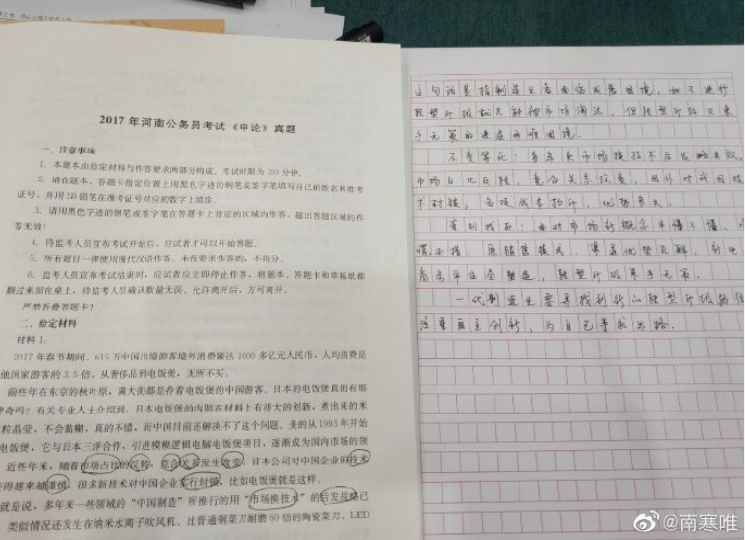 2017 年河南公务员考试《申论》真题
一、注意事项
1. 本题本由给定材料与作答要求两部分构成。考试时限为 150 分钟。
2. 请在题本、答题卡指定位置上用黑色字迹的钢笔或签字笔填写自己的姓名和准考
证号，并用 2B 铅笔在准考证号对应的数字上填涂。
3. 请用黑色字迹的钢笔或签字笔在答题卡上指定的区域内作答，超出答题区域的作
答无效！
4. 待监考人员宣布考试开始后，应试者才可以开始答题。
5. 所有题目一律使用现代汉语作答。未按要求作答的，不得分。
6. 监考人员宣布考试结束时，应试者应立即停止作答，将题本、答题卡和草稿纸都
翻过来留在桌上，待监考人员确认数量无误、允许离开后，方可离开。
严禁折叠答题卡！
二、给定材料
材料 1
2017 年春节期间，615 万中国出境游客境外消费额达 1000 多亿元人民币，人均消费是
他国家游客的 3.5 倍，从奢侈品到电饭煲，无所不买。
前些年在东京的秋叶原，满大街都是拎着电饭煲的中国游客。日本的电饭煲真的有那
神奇吗？有关专业人士介绍到，日本电饭煲的内胆在材料上有很大的创新，煮出来的米
粒晶莹，不会黏糊，真的不错，而中国目前还解决不了这个问题。美的从 1993 年开始
电饭煲，它与日本三洋合作，引进模糊逻辑电脑电饭煲项目，逐渐成为国内市场的领
近些年来，随着市场占比的反转，竞合关系发生改变，日本公司对中国企业的技术
变得越来越谨慎，很多新技术对中国企业实行封锁，比如电饭煲就是这样。
就是说，多年来一些领域的“中国制造”所推行的用“市场换技术”的后发战略已
类似情况还发生在纳米水离子吹风机、比普通钢菜刀耐磨 60 倍的陶瓷菜刀、LED
这句话是指制造业者面临发展困境，如不进行
转型升级就只能被市场淘汰，但转型升级又束
手无策的进退两难困境。
不变等死：多年来市场换技术后发战略失效，
市场占比反转，竞合关系改变，国外对我国技
术封锁，各项成本抬升，优势丧失。
平台
一代制造业要寻找到新的转型升级路径
注重自主创新，为自己寻求出路。
@南寒唯